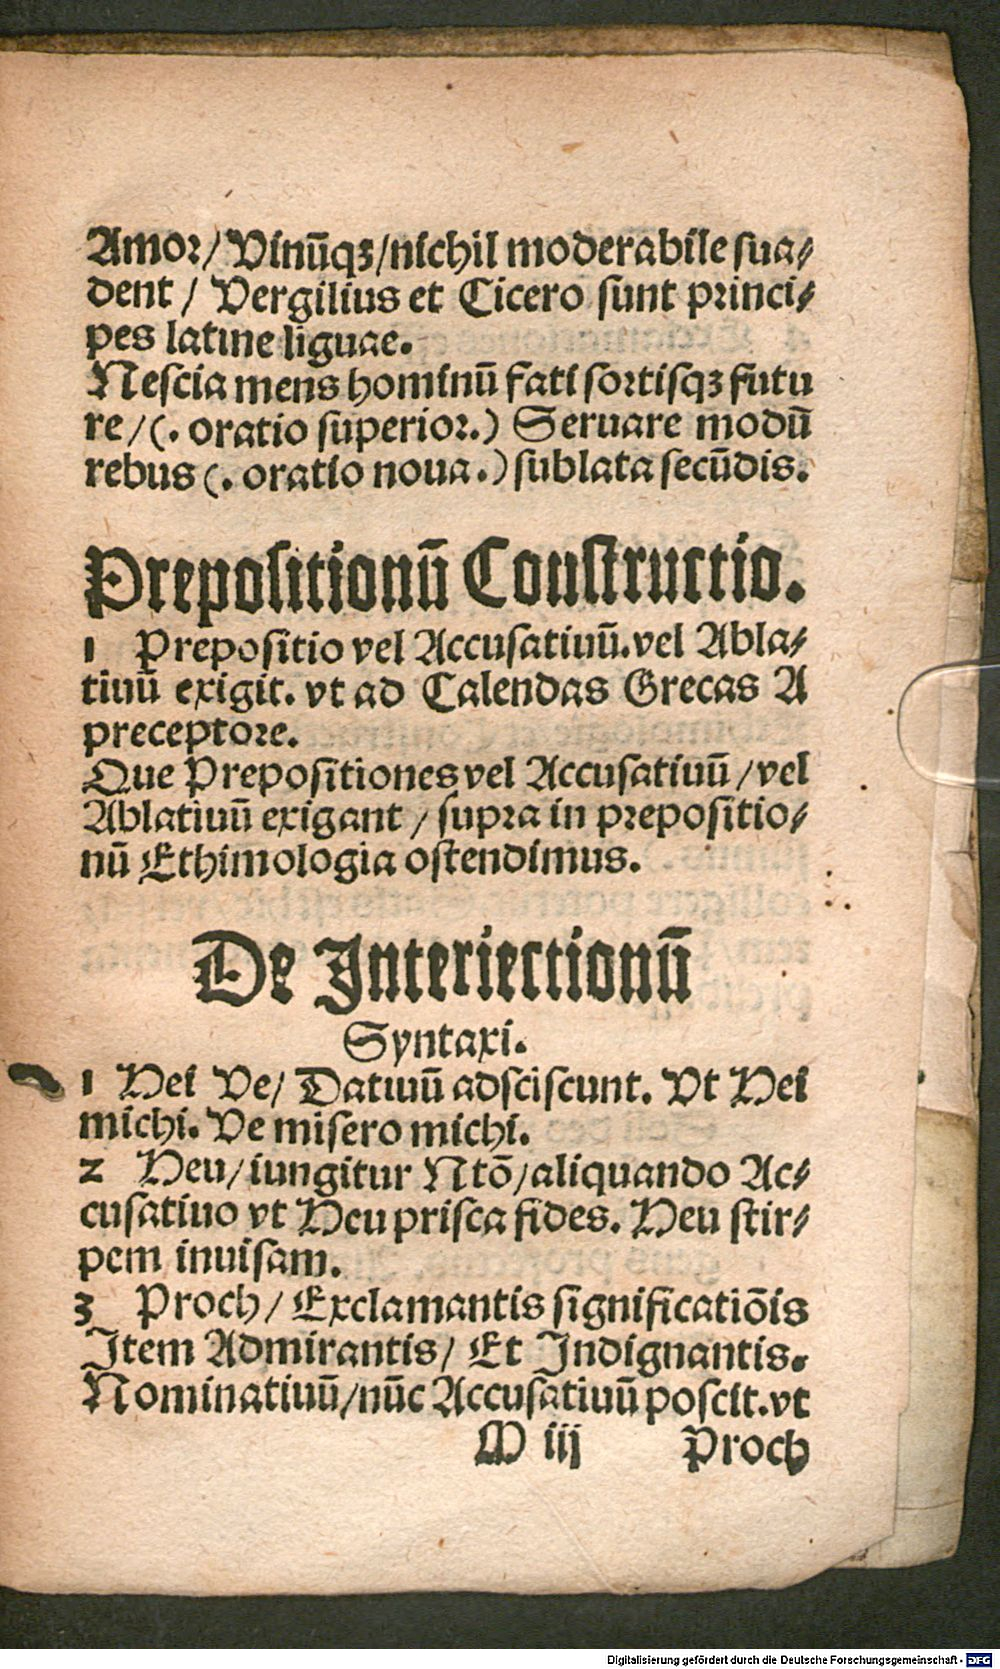 Amor/ Vinūqꝫ/nichil moderabile sua⸗
dent / Vergilius et Cicero sunt princi⸗
pes latine liguae.
Nescia mens hominū fati sortisqꝫ futu
re/(. oratio superior.) Seruare modū
rebus (. oratio noua.) sublata secūdis.
Prepositionū Constructio.
1 Prepositio vel Accusatiuū.vel Abla⸗
tiuū exigit. vt ad Calendas Grecas A
preceptore.
Que Prepositiones vel Accusatiuū /vel
Ablatiuū exigant / supra in prepositio⸗
nū Ethimologia ostendimus.
De Interiectionū
Syntaxi.
1 Hei Ve/ Datiuū adsciscunt. Vt Hei
michi. Ve misero michi.
2 Heu/iungitur Ntō/aliquando Ac⸗
cusatiuo vt Heu prisca fides. Heu stir⸗
pem inuisam.
3 Proch/ Exclamantis significatiōis
Item Admirantis/ Et Indignantis.
Nominatiuū/nūc Accusatiuū poscit.vt
M iij Proch
Digitalisierung gefördert durch die Deutsche Forschungsgemeinschaft - DFG